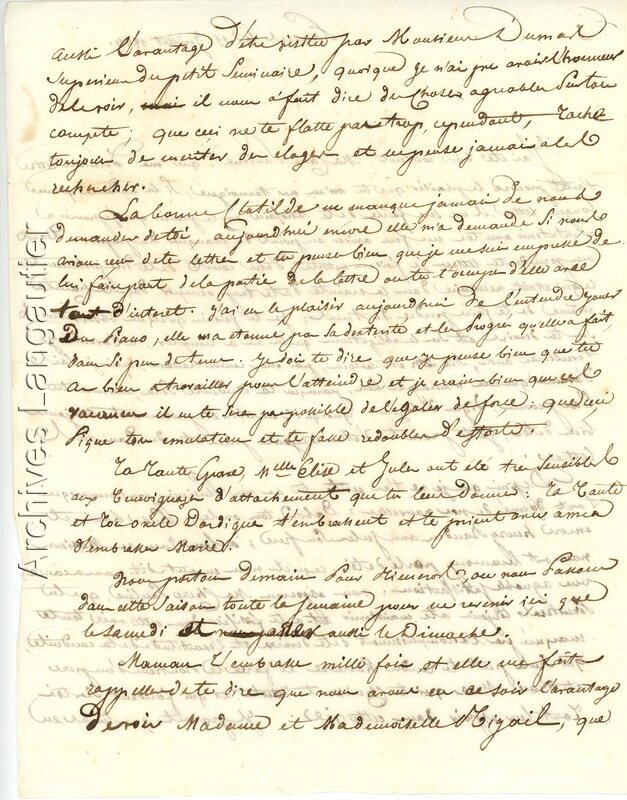 aussi l'avantage d'être visitée par Monsieur Dumas
Superieur du petit Seminaire, quoique je n'ai pas avais l'honneur
de le voir, il nous a fait dire des choses agreables sur ton
compte; que ceci ne te flatte pas trop, cependant, tache
toujours de meriter des eloges et ne pense jamais a les
rechercher.
La bonne Clotilde ne manque jamais de nous
demander de toi, aujourd'hui encore elle m'a demandé Si nous
avions reçu de tes lettres et tu penses bien que je me suis empressé de
lui faire part de la partie de la lettre ou tu t'occupes d'elle avec
tant d'interet. j'ai eu le plaisir aujourd'hui de l'entendre jouer
Du Piano; elle m'a etonné par sa dexterité et les Progres qu'elle a fait
dans si peu de tems. Je dois te dire que je pense bien que tu
as bien a travailler pour l'atteindre et je crains bien que
vacances il ne te sera pas possible de l'egaler de force; que ceci
Pique ton emulation et te fasse redoubler d'efforts.
Ta Tante Grave, Melle Elise et Jules ont été tres sensibles
aux Temoignages d'attachement que tu leur donnes: Ta Tante
et Ton oncle Dardigue t'embrassent et te prient
d'embrasser Marie.
Nous partons demain Pour ou nous Passons
dans cette saison toute la Semaine pour ne revenir ici que
le Samedi et aussi le Dimanche.
Maman t'embrasse mille fois et elle me fait
rappeller de te dire que nous avons eu ce soir l'avantage
De voir Madame et Mademoiselle Rigail, que
Archives Langautier